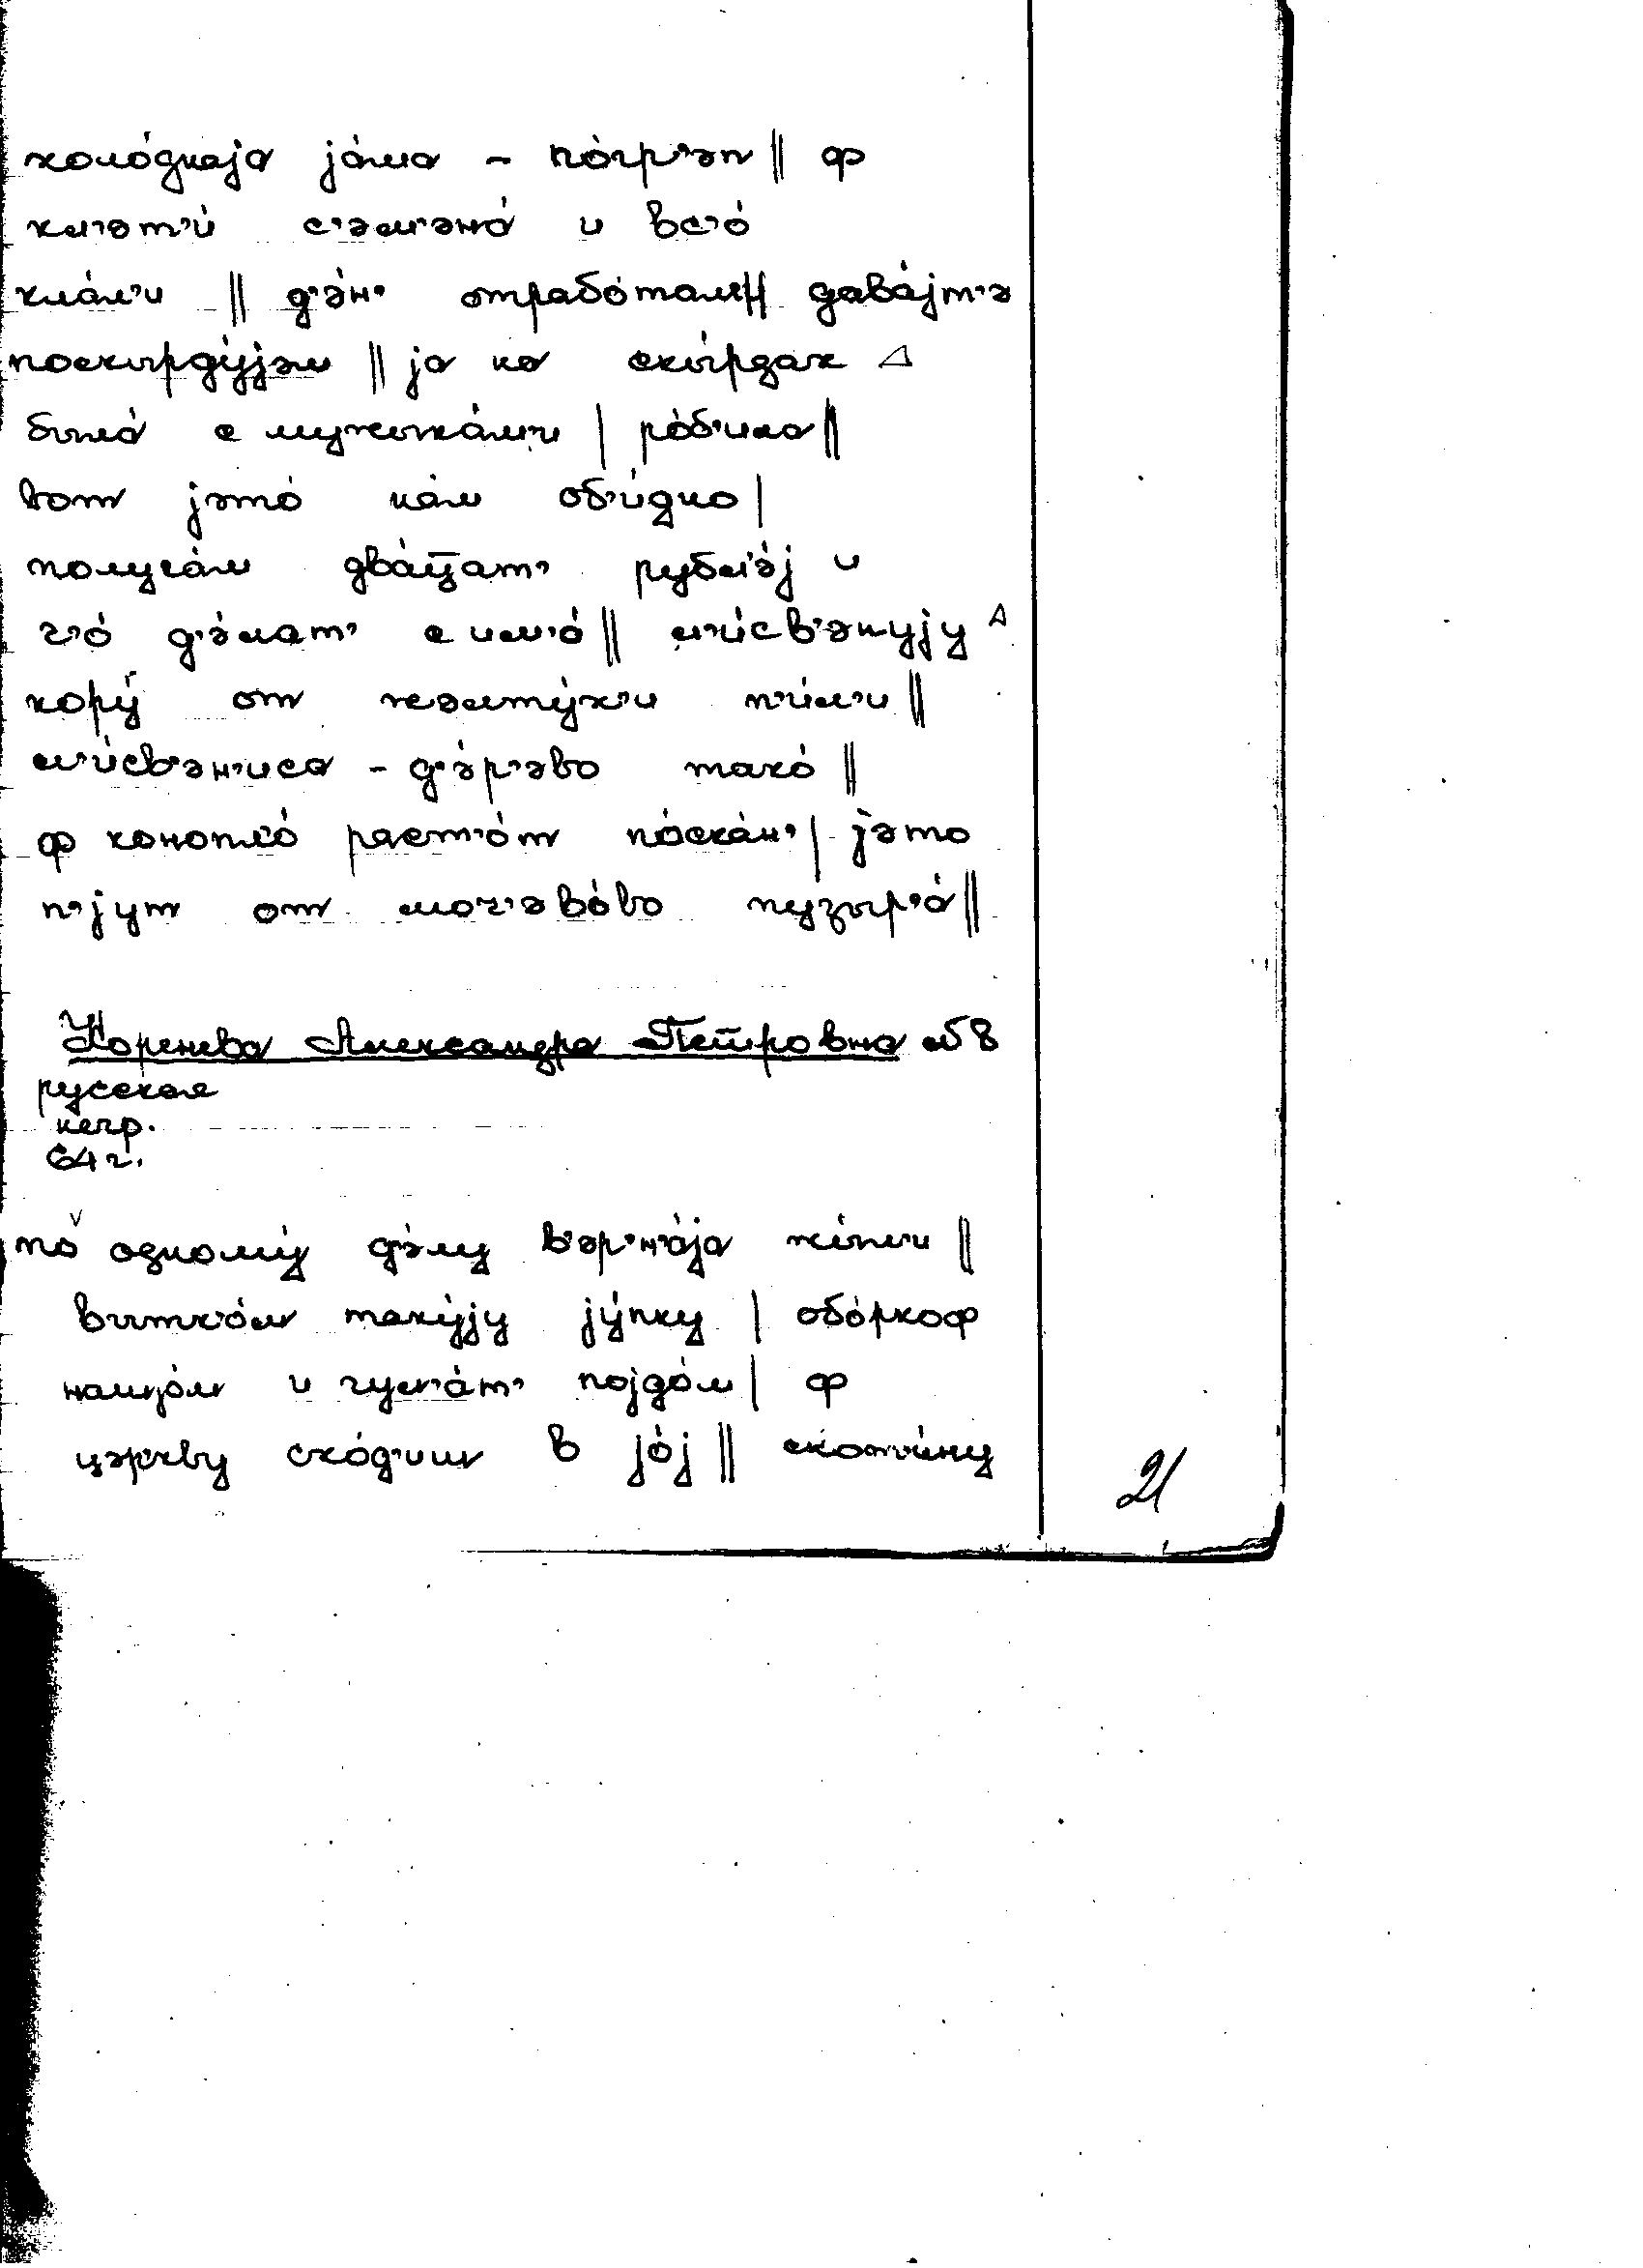 холо́днаjа jа́ма – по́гр'эп || ф
кл'эт'и́ с'эм'эна́ и вс'о́
кла́л'и || д'э́н' отрабо́тал'и || дава́jт'э
поскырду́jэм || jа на скы́рдах △
была́ с мужыка́м'и | ро́б'ила ||
вот jэто́ на́м об'и́дно |
получа́м два́ц̄ат' рубл'э́j и
ч'о́ д'э́лат' с им'о́ || л'и́св'энуjу △
кору́ от жэлту́х'и п'и́л'и ||
л'и́св'эн'иса – д'э́р'эво тако́ ||
ф конопл'о́ раст'о́т по́скан' | jэ́то
п'jут от моч'эво́во пузыр'а́ ||
Коренева Александра Петровна
русская
негр.
64 г.
по одному́ д'э́лу в'эр'н'а́jа жы́л'и ||
вытк'о́м таку́jу jу́пку | обо́ркоф
нашjо́м и гул'а́т' поjдо́м | ф
цэ́ркву схо́д'иш в jо́j || скот'и́ну
21